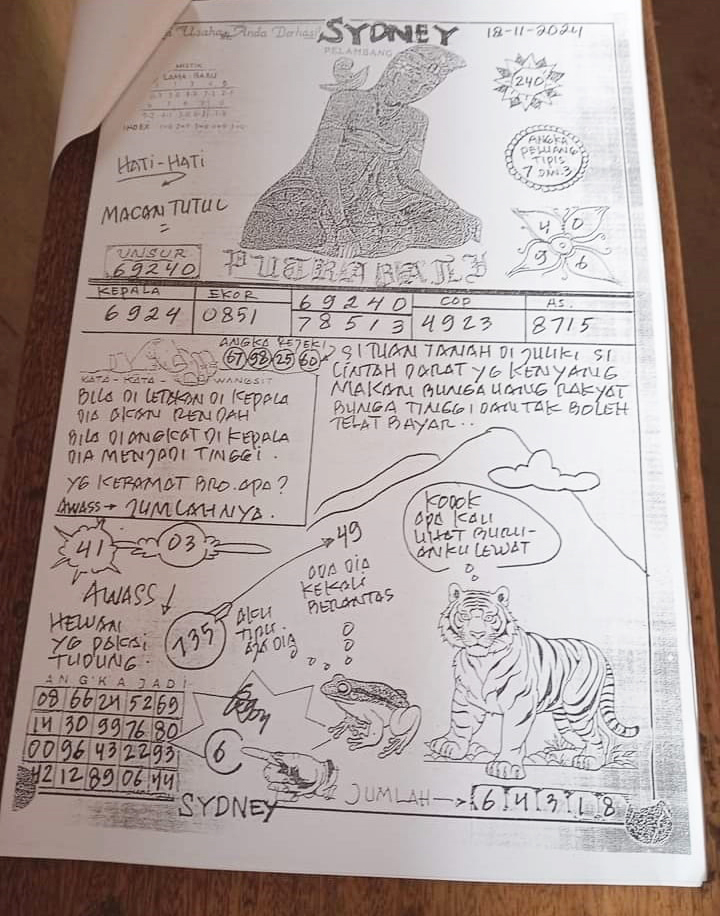 Usaha Anda Berhasil
SYDNEY
18-11-2024
PELAMBANG
MISTIK
LAMA - BARU
INDEX
240
HATI-HATI
MACAN TUTUL
ANGKA
PELUANG
TIPIS
7 DAN.3
4 0
9 6
UNSUR
69240
PUTRA BALI
KEPALA EKOR 69240 COP AS.
6924 0851 78513 4923 8715
ANGKA REJEKI
67 98 25 60
KATA - KATA - WANGSIT
BILA DI LETAKAN DI KEPALA
DIA AKAN RENDAH
BILA DIANGKAT DI KEPALA
DIA MENJADI TINGGI.
YG KERAMAT BRO. APA?
AWASS → JUMLAHNYA.
SI TUAN TANAH DI JULIKI SI
LINTAH DARAT YG KENYANG
MAKAN BUNGA UANG RAKYAT
BUNGA TINGGI DAN TAK BOLEH
TELAT BAYAR..
41 03
49
KODOK
APA KAU
LIHAT BURU-
ANKU LEWAT
ADA DIA
KEKALI
BERANTAS
AWASS
HEWAN
YG PAKAI
TUDUNG.
735
AKU
DIA
ANGKA JADI
08 66 24 52 69
14 30 99 76 80
00 96 43 22 93
42 12 89 06 44
6
SYDNEY
JUMLAH → 6 4 3 1 8